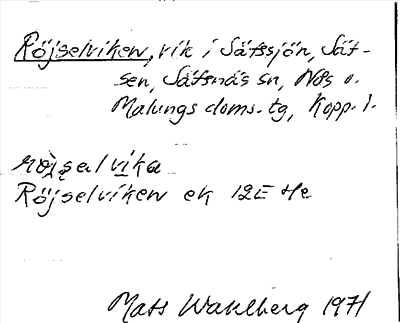 Röjselviken, vik i Sätssjön, Sät-
sen, Säfsnäs sn, Nås o.
Malungs doms. tg, Kopp. l.
Röjselviken ek 12E 4e
Mats Wahlberg 1971